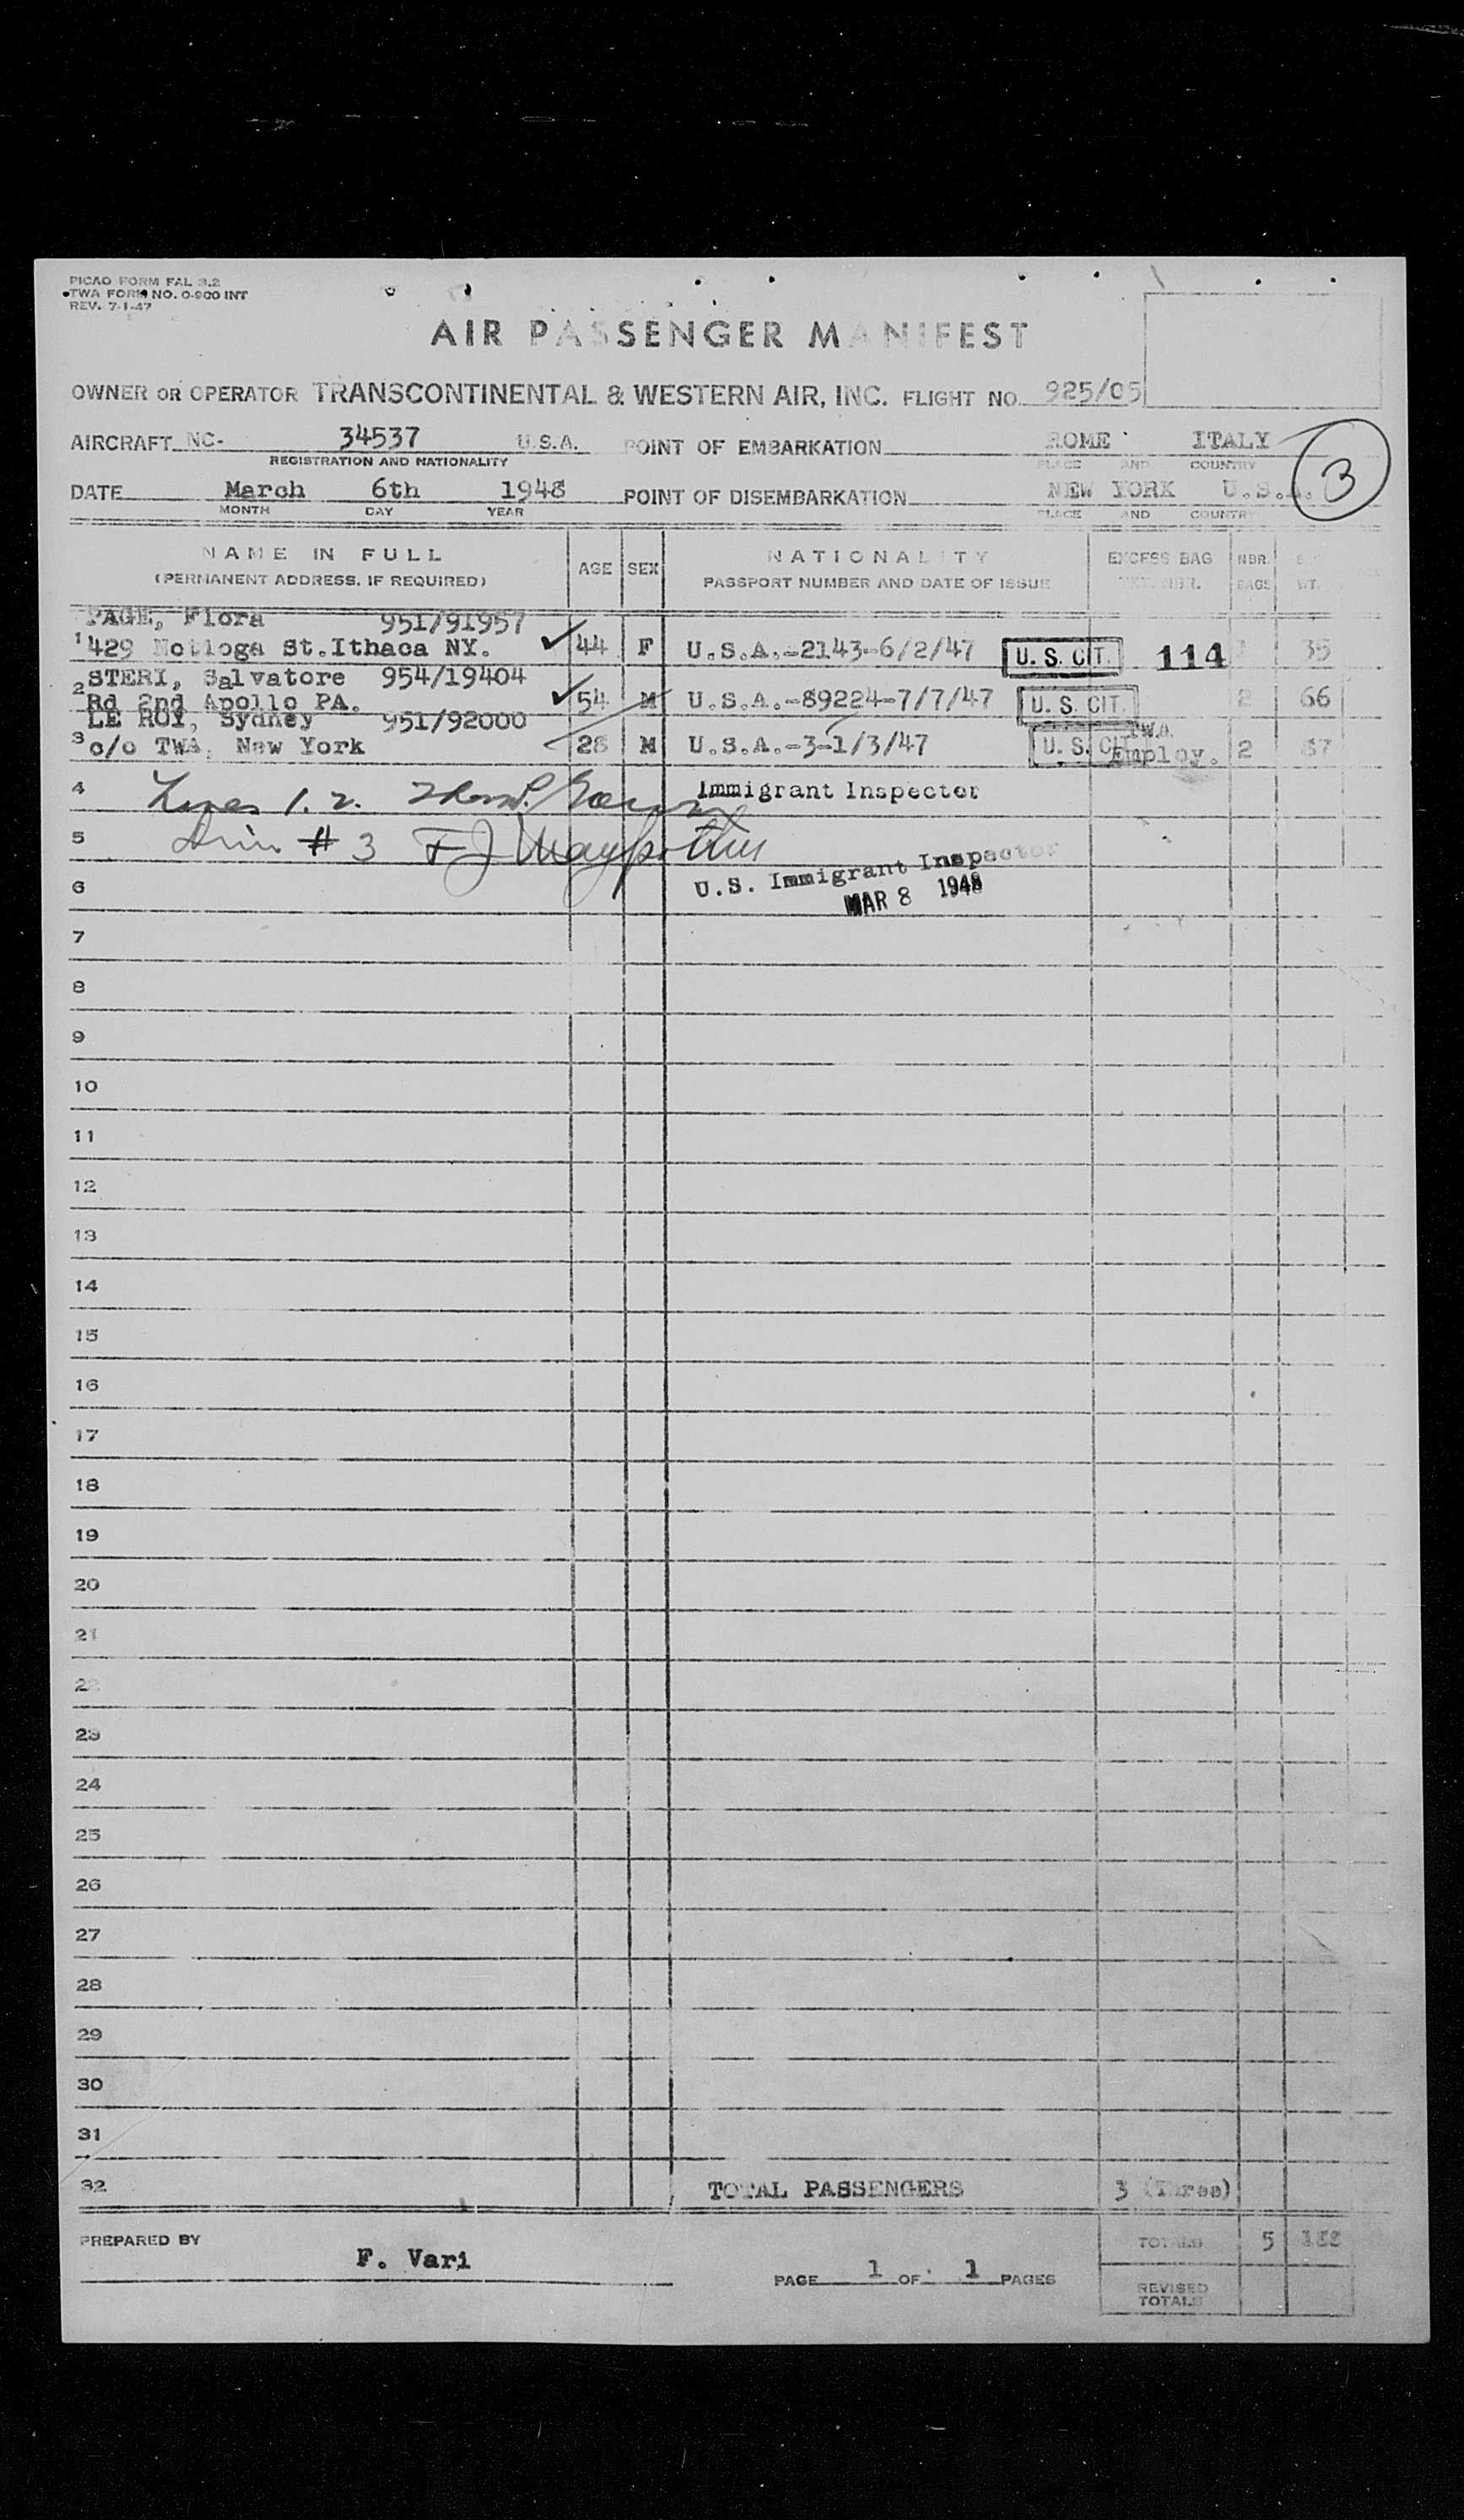 PICAO FORM FAL 3.2
TWA FORM NO. 0-900 INT
REV. 7-1-47
AIR PASSENGER MANIFEST
OWNER OR OPERATOR TRANSCONTINENTAL & WESTERN AIR, INC. FLIGHT NO. 925/05
AIRCRAFT NC- 34537 U.S.A. POINT OF EMBARKATION ROME ITALY
REGISTRATION AND NATIONALITY PLACE AND COUNTRY
3
DATE March 6th 1948 POINT OF DISEMBARKATION NEW YORK U.S.A.
MONTH DAY YEAR PLACE AND COUNTRY
NAME IN FULL AGE SEX NATIONALITY EXCESS BAG NBR.
(PERMANENT ADDRESS, IF REQUIRED) PASSPORT NUMBER AND DATE OF ISSUE TKT. NBR. BAGS WT.
PAGE, Flora 951/91957
1 429 St.Ithaca NY. 44 F U.S.A.-2143-6/2/47 U. S. CIT. 114 35
STERI, Salvatore 954/19404
2 Rd 2nd Apollo PA. 54 M U.S.A.-89224-7/7/47 U. S. CIT. 2 66
LE ROY, Sydney 951/92000
3 c/o TWA, New York 28 M U.S.A.-3-1/3/47 U. S. CIT. T.W.A. Employ. 2
4 Lines 1. 2. Immigrant Inspector
5 # 3 F J
6 U.S. Immigrant Inspector
MAR 8 1948
7
8
9
10
11
12
13
14
15
16
17
18
19
20
21
22
23
24
25
26
27
28
29
30
31
32 TOTAL PASSENGERS 3 (Three)
PREPARED BY F. Vari TOTALS 5
PAGE 1 OF 1 PAGES
REVISED
TOTALS